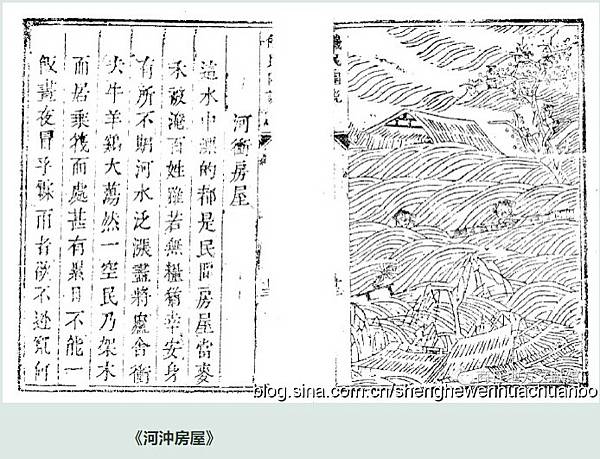 饑民圖說
河衝房屋
這水中漂的都是民間房屋當麥
禾被淹百姓雖若無糧猶幸安身
有所不期河水泛漲盡將廬舍衝
牛羊雞犬蕩然一空民乃架木
而居乘筏而處甚有累日不能一
飯晝夜冒乎霖雨者欲不逃竄何
blog.sina.com.cn/shenghewenhuachuanbo
《河沖房屋》